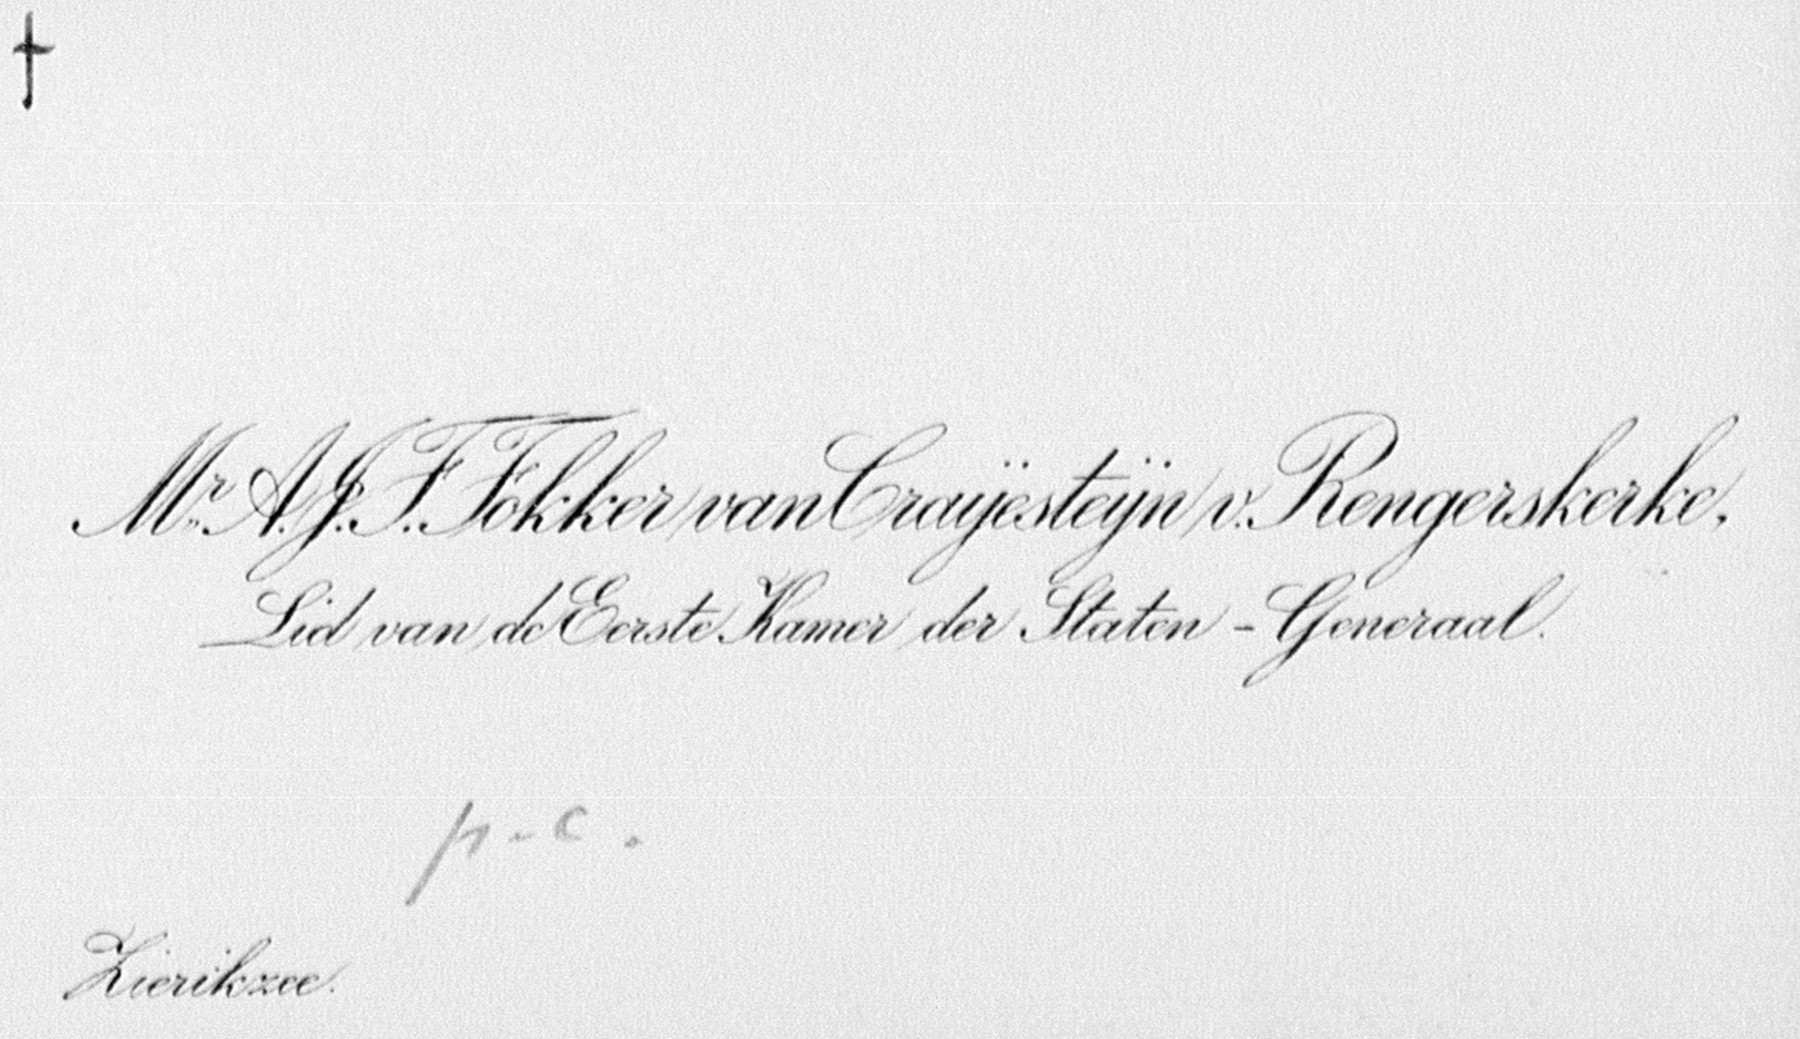 †
Mr. A.J.F. Fokker van Crayesteyn v. Rengerskerke,
Lid van de Eerste Kamer der Staten - Generaal.
p.c.
Zierikzee.